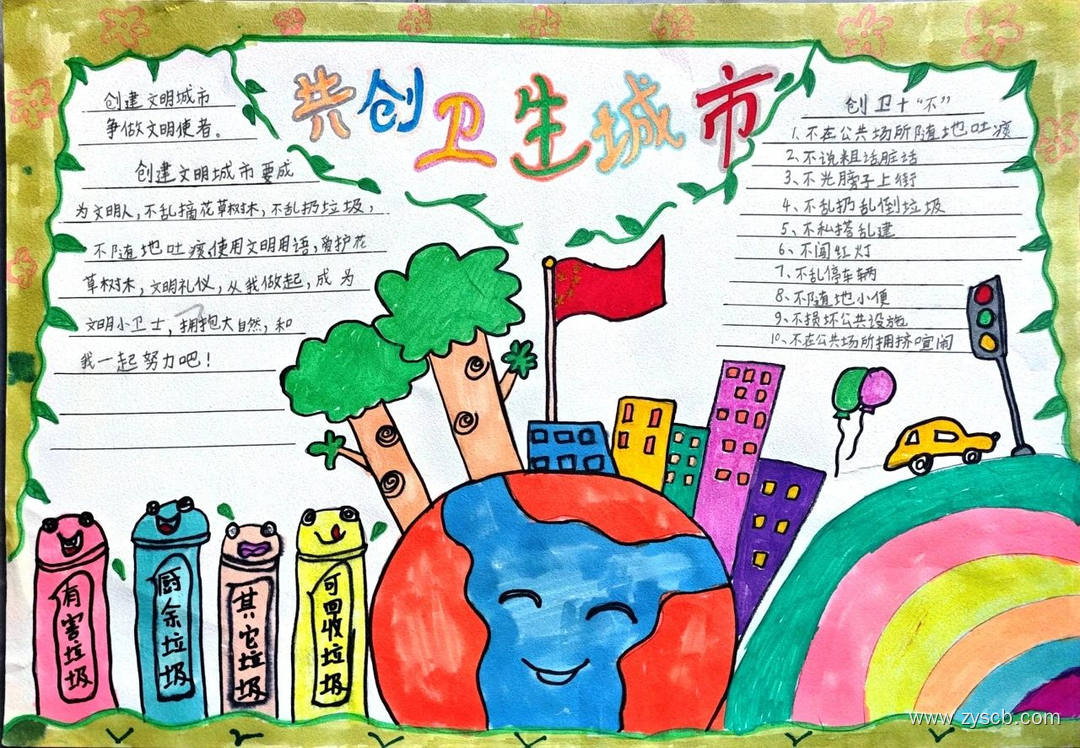 共创卫生城市
创建文明城市
争做文明使者。
创建文明城市要成
为文明人,不乱摘花草树木,不乱扔垃圾,
不随地吐痰使用文明用语,爱护花
草树木,文明礼仪,从我做起,成为
文明小卫士,拥抱大自然,和
我一起努力吧!
创卫十“不”
1、不在公共场所随地吐痰
2、不说粗话脏话
3、不光膀子上街
4、不乱扔乱倒垃圾
5、不私搭乱建
6、不闯红灯
7、不乱停车辆
8、不随地小便
9、不损坏公共设施
10、不在公共场所拥挤喧闹
有害垃圾
厨余垃圾
其它垃圾
可回收垃圾
www.zyscb.com